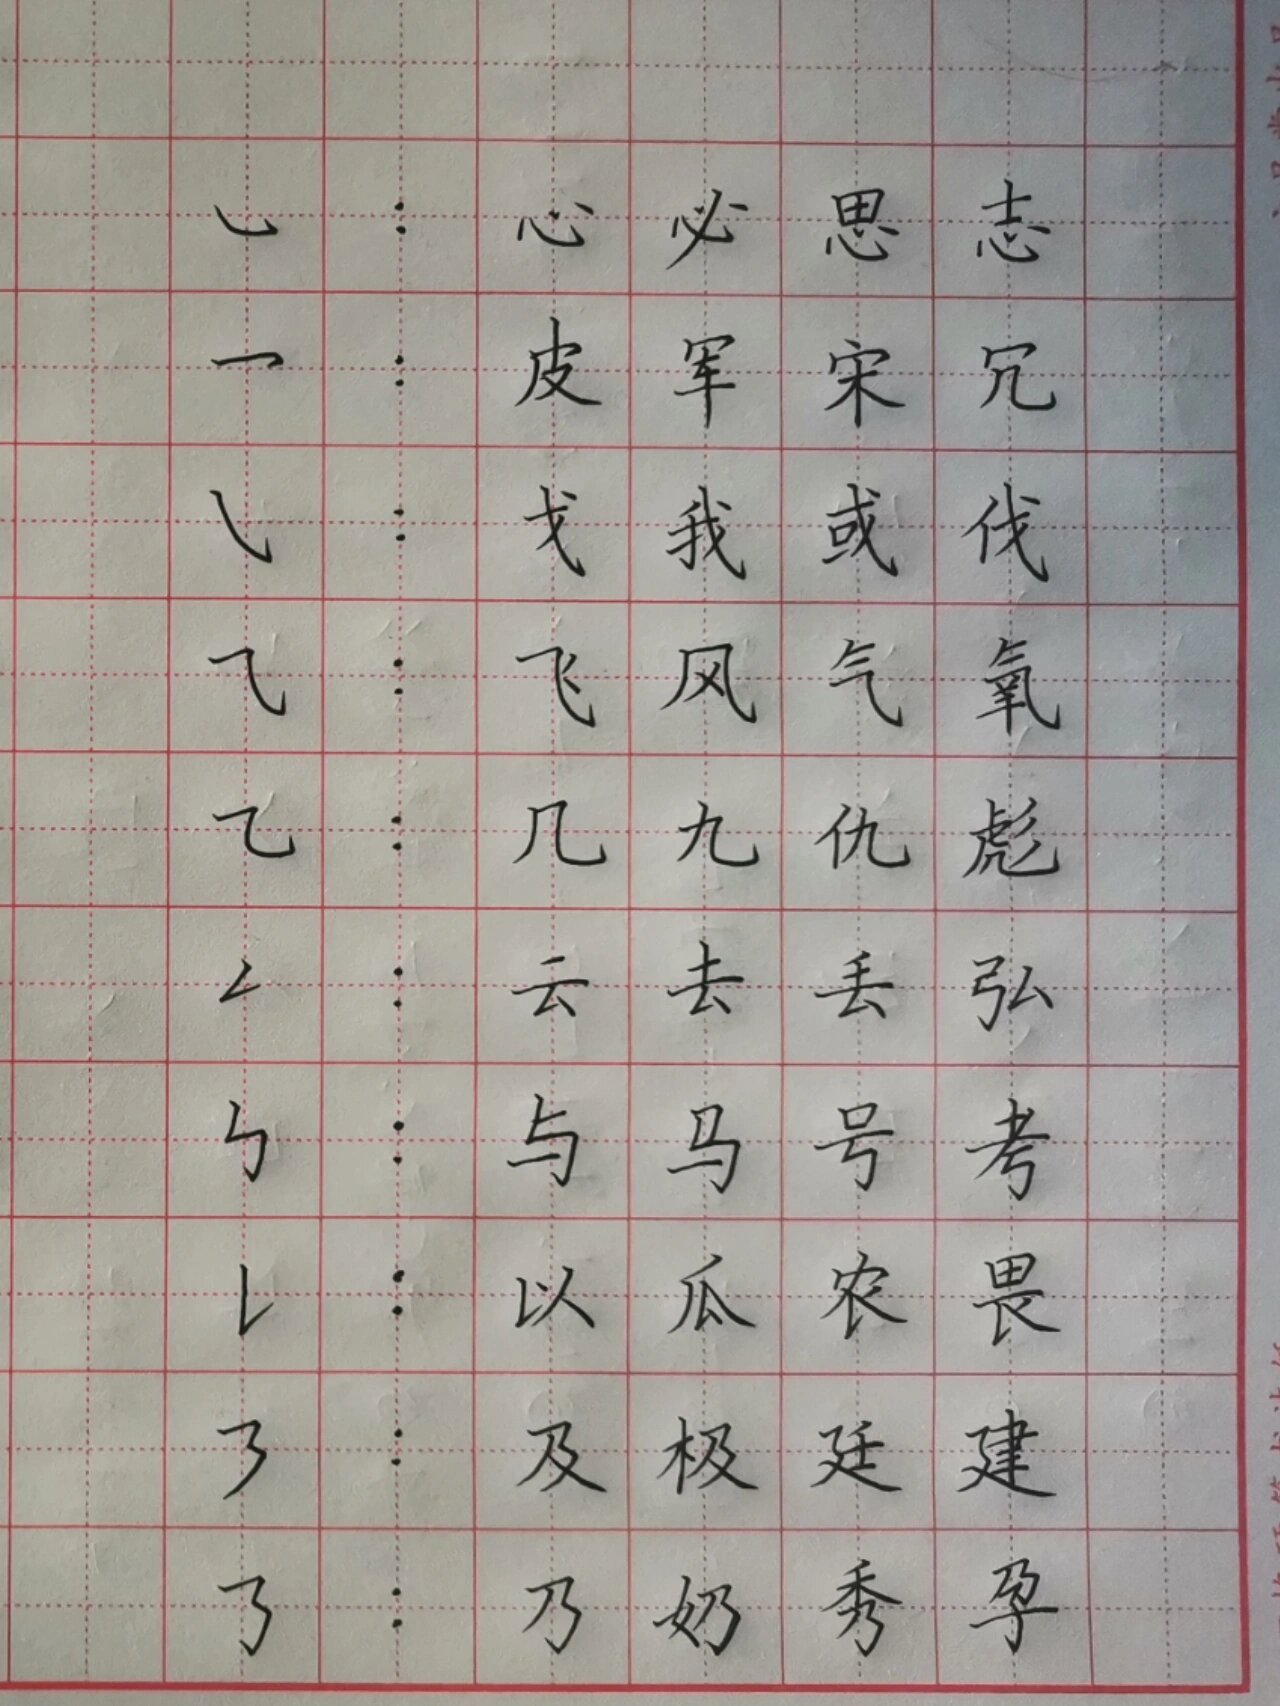 ㇃：心必思志
乛：皮军宋冗
㇂：戈我或伐
⺄：飞风气氧
乙：几九仇彪
㇜：云去丢弘
㇉：与马号考
㇙：以瓜农畏
㇋：及极廷建
㇡：乃奶秀孕